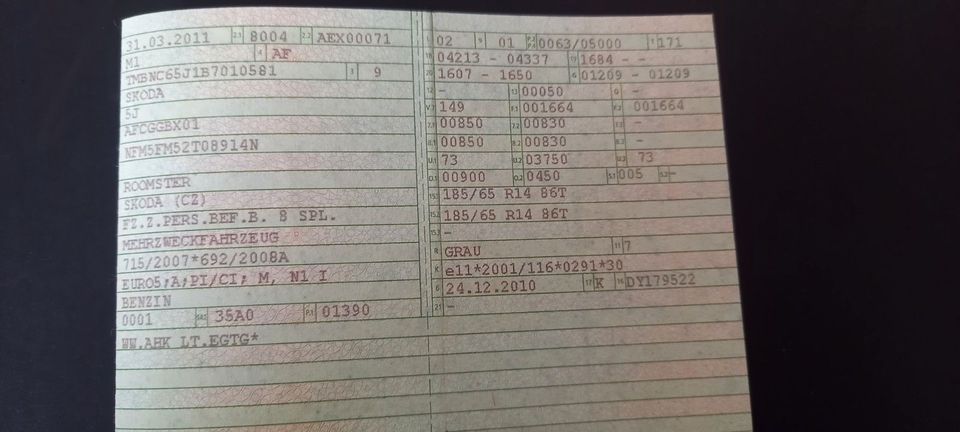 31.03.2011 2.1 8004 2.2 AEX00071
M1 4 AF
TMBNC65J1B7010581 3 9
SKODA
5J
AFCGGBX01
NFM5FM52T08914N
ROOMSTER
SKODA (CZ)
FZ.Z.PERS.BEF.B. 8 SPL.
MEHRZWECKFAHRZEUG
715/2007*692/2008A
EURO5;A;PI/CI; M, N1 I
BENZIN
0001 35A0 P.1 01390
WW.AHK LT.EGTG*
L 02 9 01 0063/05000 T 171
18 04213 - 04337 19 1684 - -
20 1607 - 1650 G 01209 - 01209
12 - 13 00050 Q -
V.7 149 F.1 001664 F.2 001664
7.1 00850 7.2 00830 7.3 -
8.1 00850 8.2 00830 8.3 -
U.1 73 U.2 03750 U.3 73
O.1 00900 O.2 0450 S.1 005 S.2 -
15.1 185/65 R14 86T
15.2 185/65 R14 86T
15.3 -
R GRAU 11 7
K e11*2001/116*0291*30
6 24.12.2010 17 K 16 DY179522
21 -